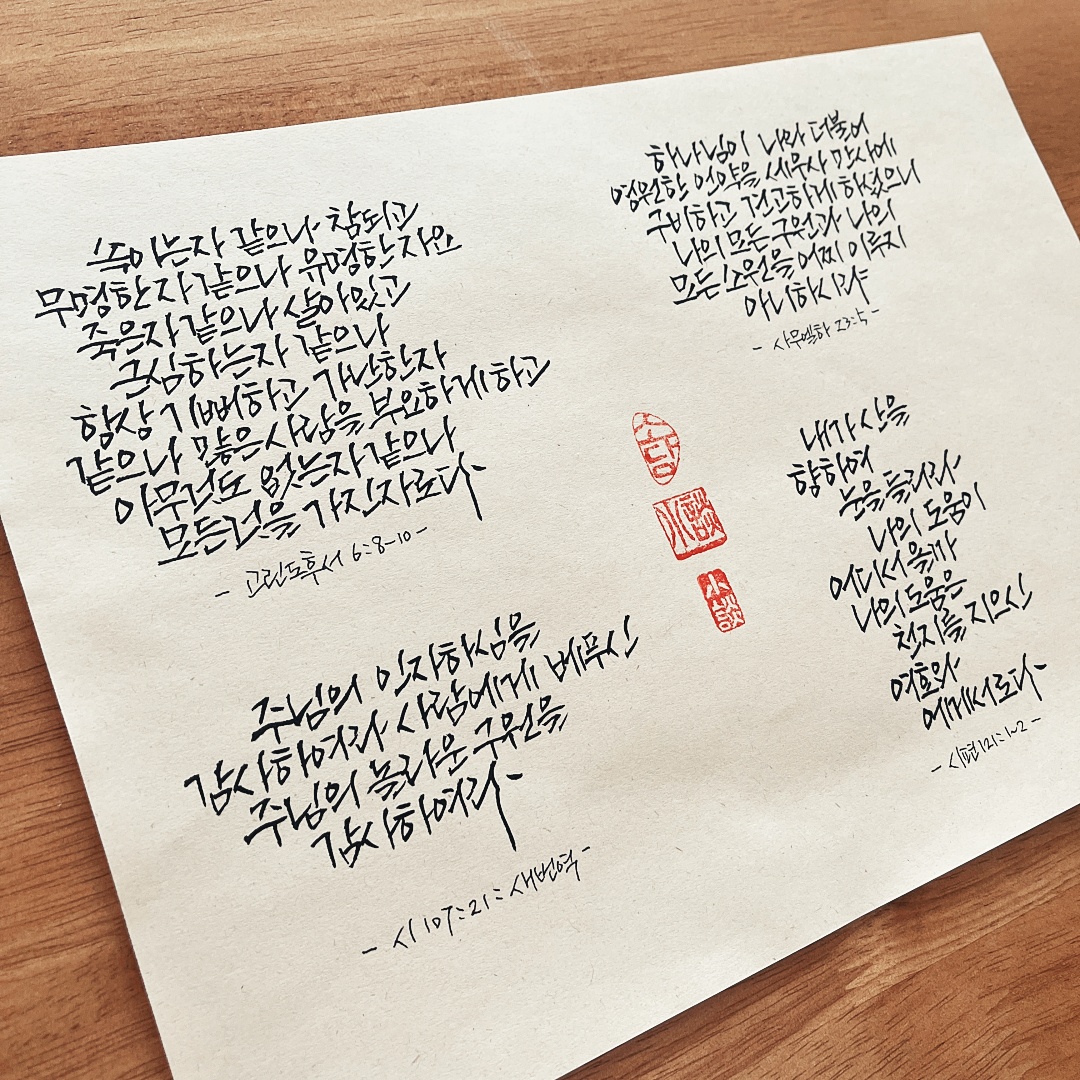 속이는자 같으나 참되고
무명한 자 같으나 유명한 자요
죽은자 같으나 살아있고
근심하는자 같으나
항상 기뻐하고 가난한자
같으나 많은 사람을 부요하게 하고
아무것도 없는자 같으나
모든것을 가진자로다
- 고린도후서 6:8-10 -
하나님이 나와 더불어
영원한 언약을 세우사 만사에
구비하고 견고하게 하셨으니
나의 모든 구원과 나의
모든 소원을 어찌 이루지
아니하시랴
- 사무엘하 23:5 -
내가 산을
향하여
눈을 들리라
나의 도움이
어디서 올까
나의 도움은
천지를 지으신
여호와
에게서로다
- 시편 121:1~2 -
소담
小談
小談
주님의 인자하심을
감사하여라 사람에게 베푸신
주님의 놀라운 구원을
감사하여라
- 시 107:21: 새번역 -